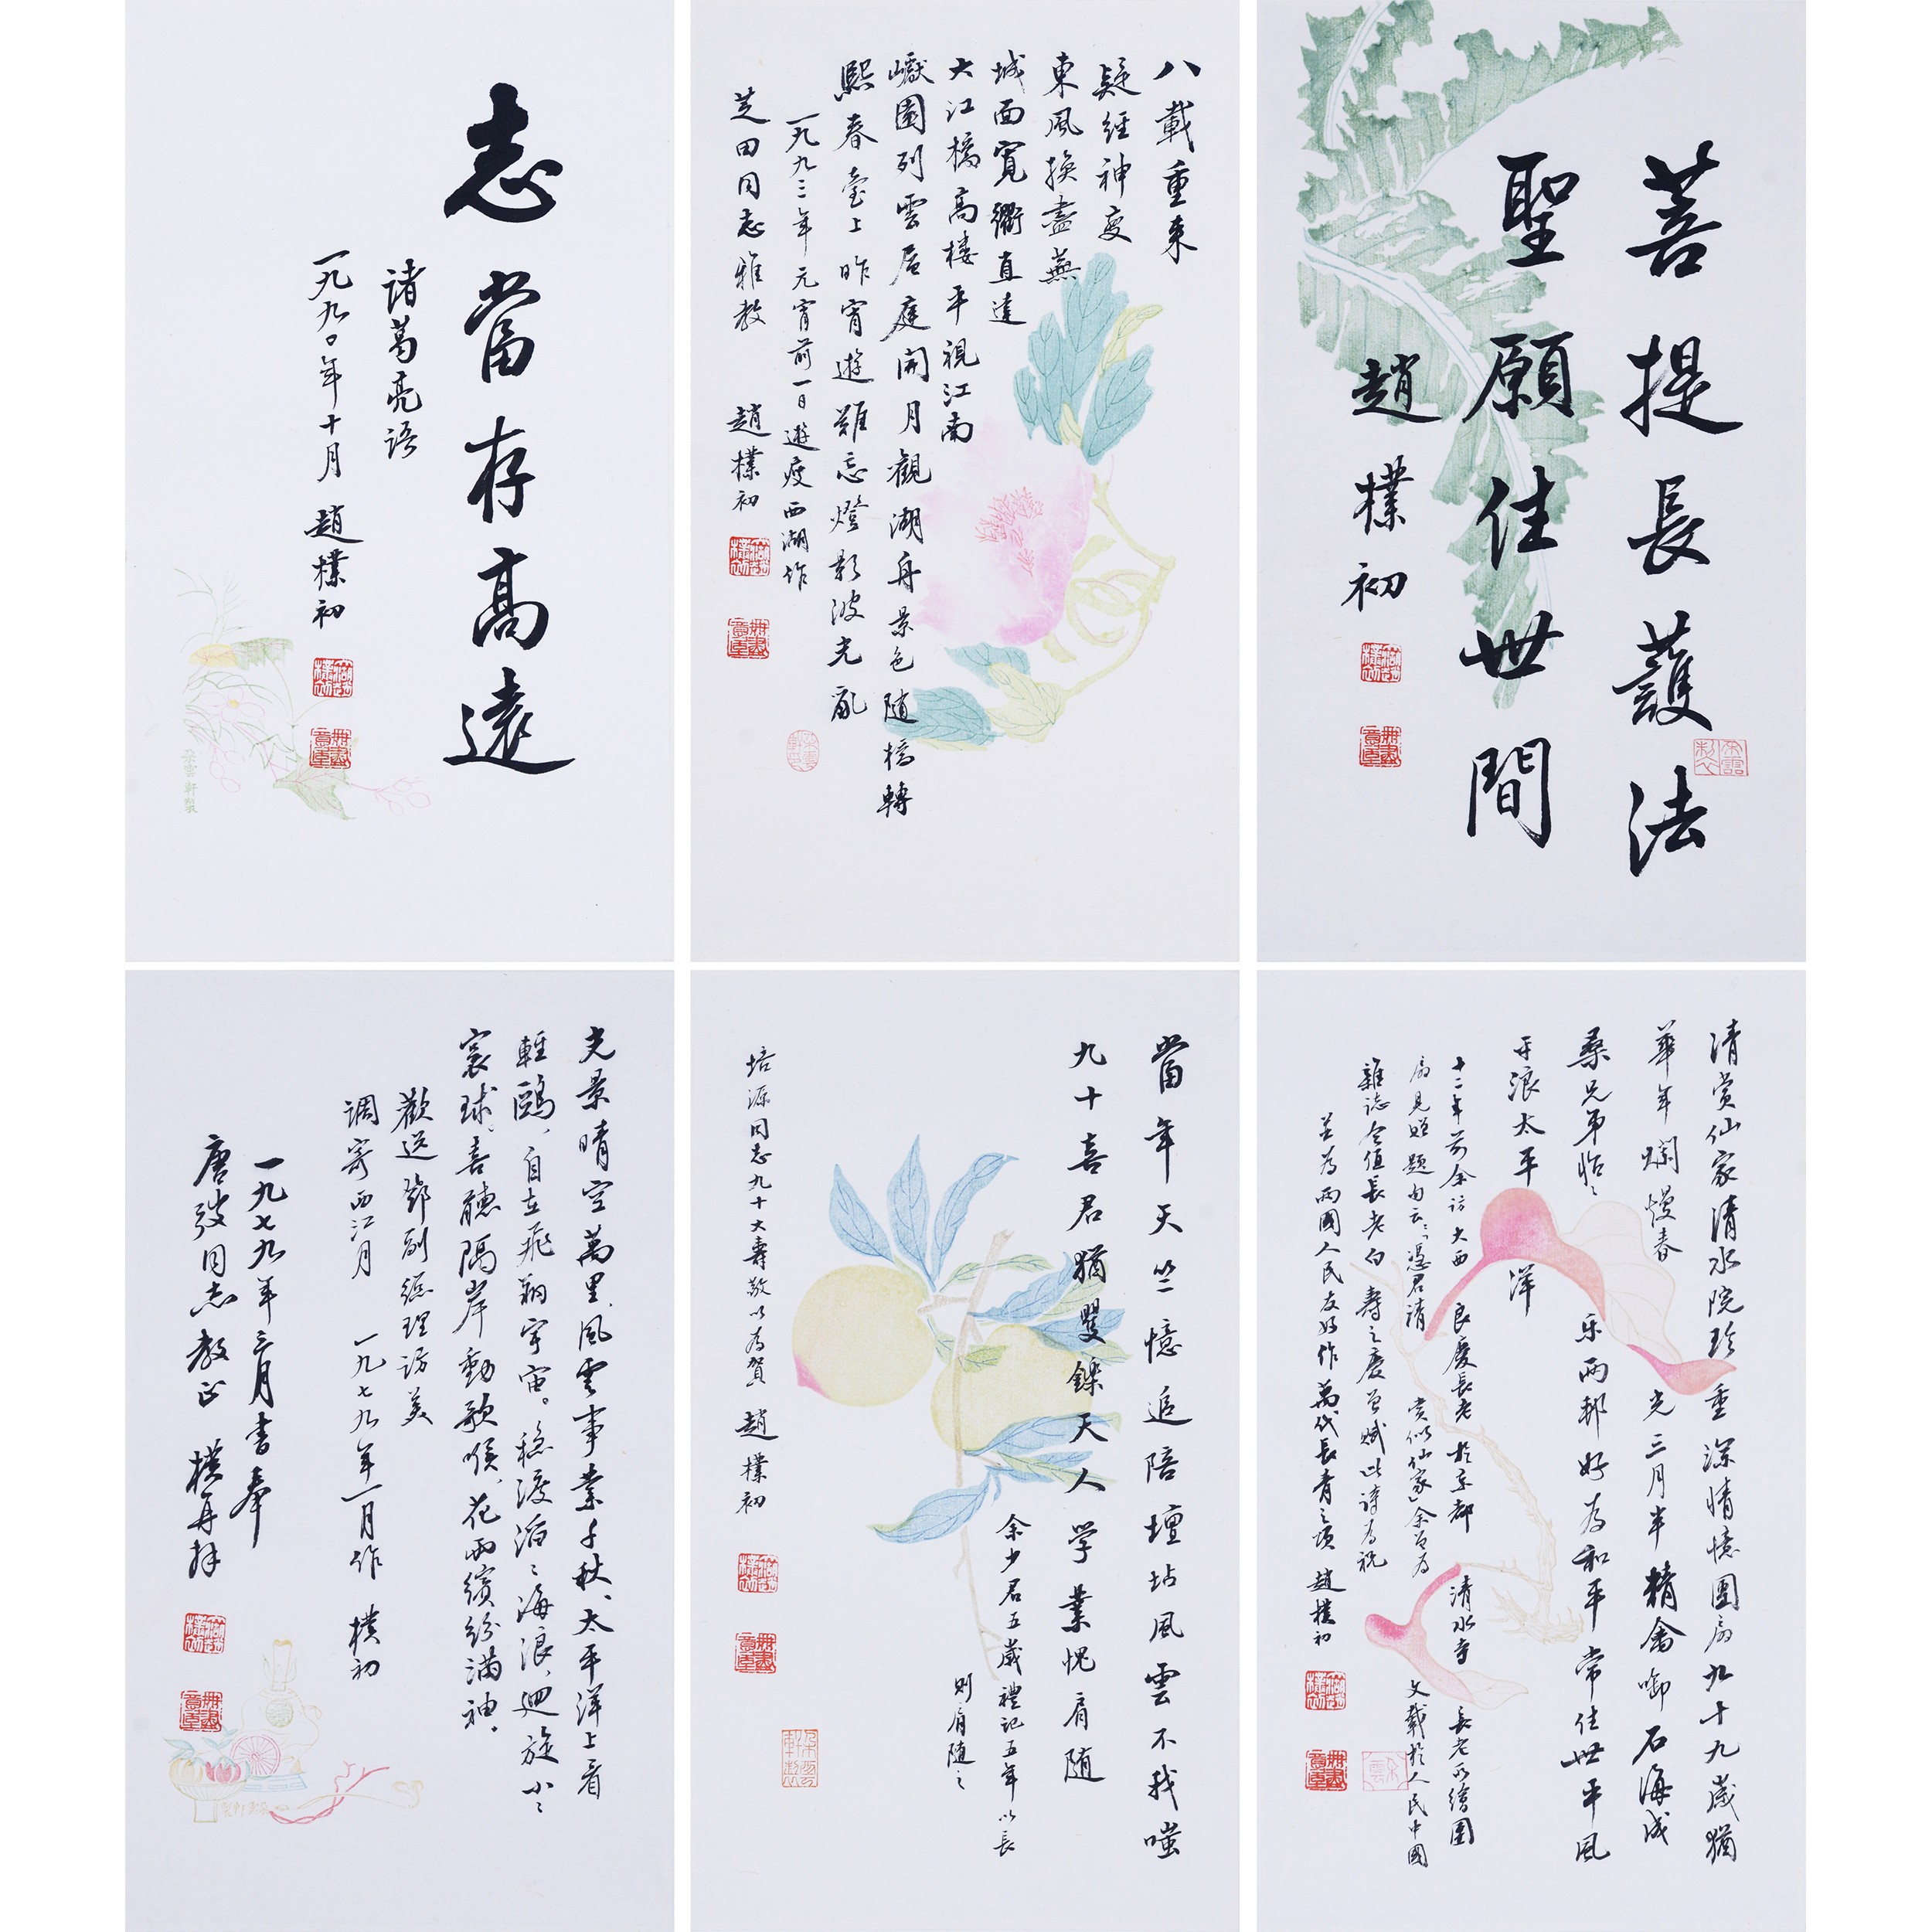 菩提長護法
聖願住世間
趙樸初
八載重來
疑經神變
東風換盡蕪
城面寬衢直達
大江橋高樓平視江南
巘園列雲層庭開月觀湖舟景色隨橋轉
熙春臺上昨宵遊難忘燈影波光亂
一九九三年元宵前一日遊瘦西湖作
芝田同志雅教 趙樸初
志當存高遠
诸葛亮语
一九九〇年十月 趙樸初
朵雲軒製
清赏仙家清水院珍重深情憶團扇九十九歲猶
華年爛熳春光三月半精禽啣石海成
桑兄弟怡〻乐兩邦好為和平常住世平風
平浪太平洋
十二年前余訪大西良慶長老於京都清水寺長老所繪團
扇見贈題句云「憑君清賞似仙家」余曾為文載於人民中國
雜誌今值長老白壽之慶爰賦此詩為祝
並為兩國人民友好作萬代長青之頌 趙樸初
當年天竺憶追陪壇坫風雲不我嗤
九十喜君猶矍鑠天人学業愧肩随
余少君五歲禮記五年以長
則肩随之
培源同志九十大壽敬以為賀 趙樸初
光景晴空萬里、風雲事業千秋、太平洋上看
輕鷗、自在飛翔宇宙。穩渡滔〻海浪、迴旋小〻
寰球、喜聽隔岸動歌喉、花雨繽紛满袖。
歡送鄧副總理訪美
调寄西江月 一九七九年一月作 樸初
一九七九年三月書奉
唐弢同志教正 樸初拜